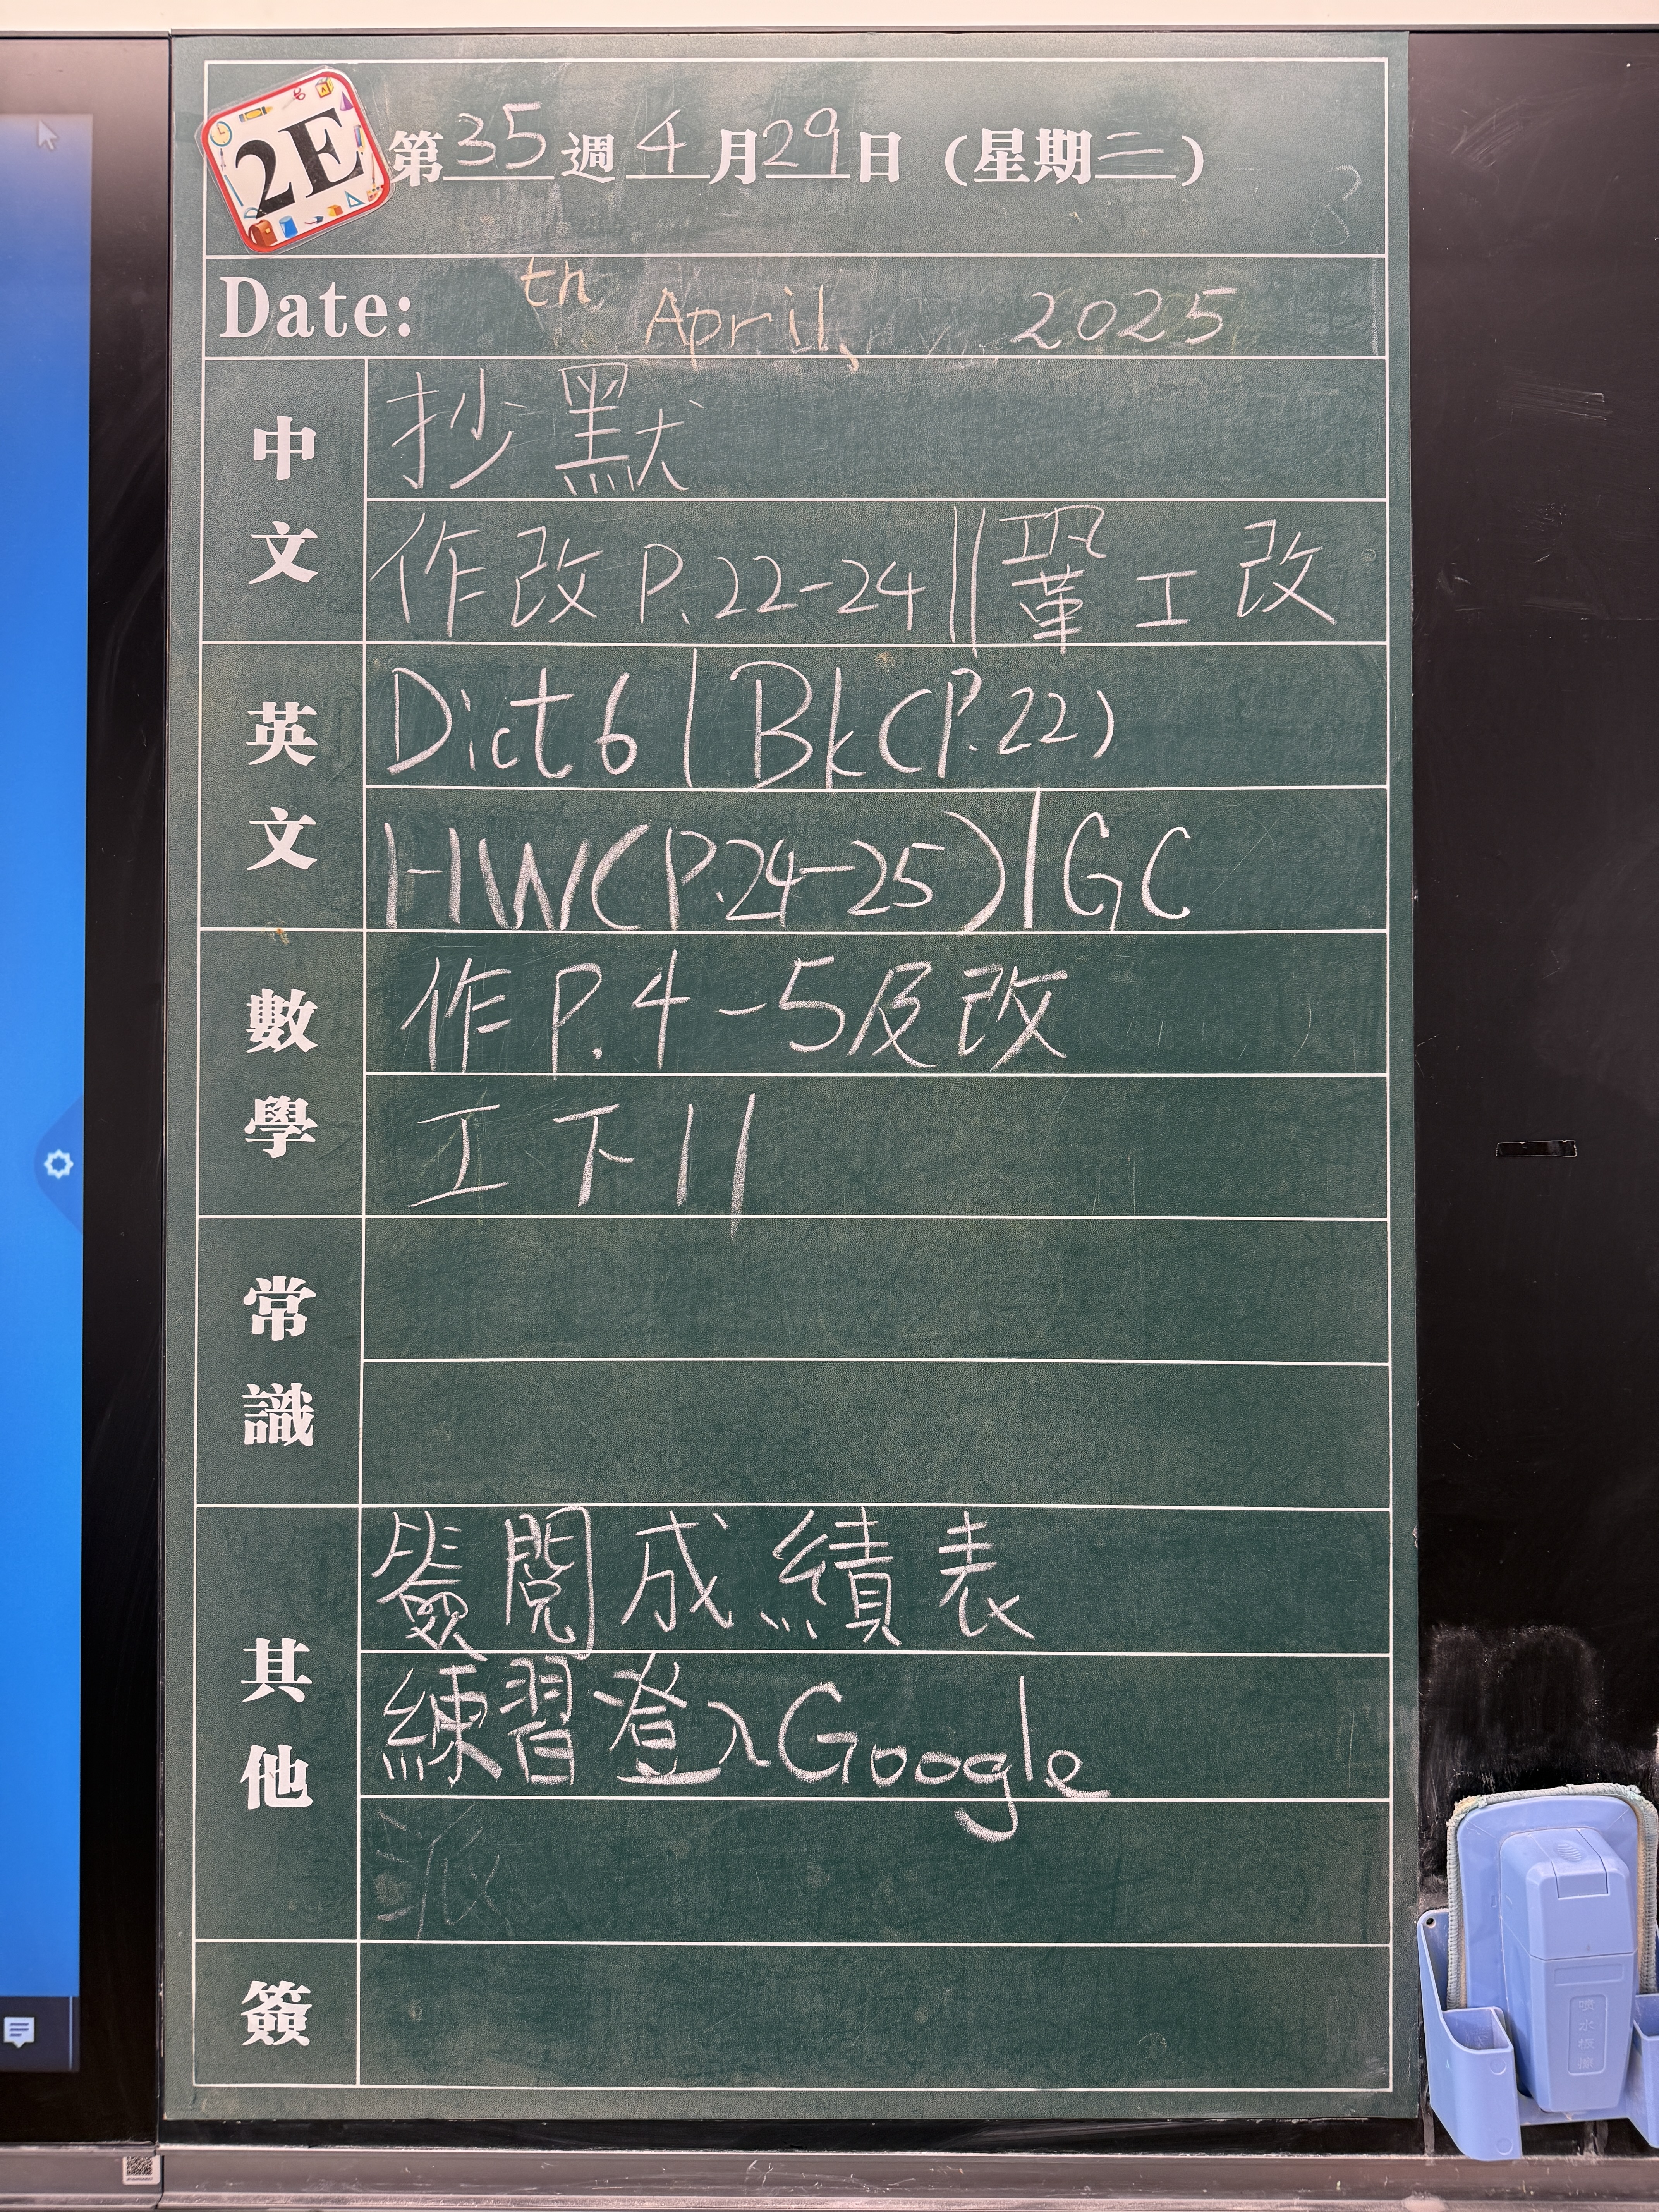 2E
第35週4月29日(星期二)
Date: th April, 2025
中文
抄默
作改P.22-24||鞏工改
英文
Dict 6 | Bk(P.22)
HW(P.24-25)|GC
數學
作P.4-5及改
工下11
常識
其他
簽閱成績表
練習登入Google
派
簽